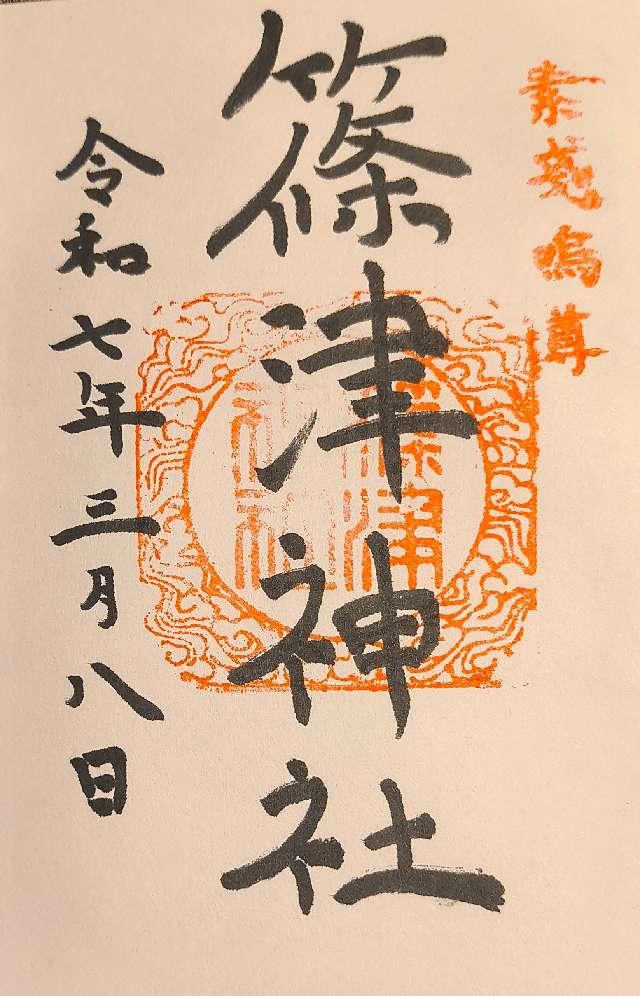 素戔嗚尊
篠津神社
令和七年三月八日